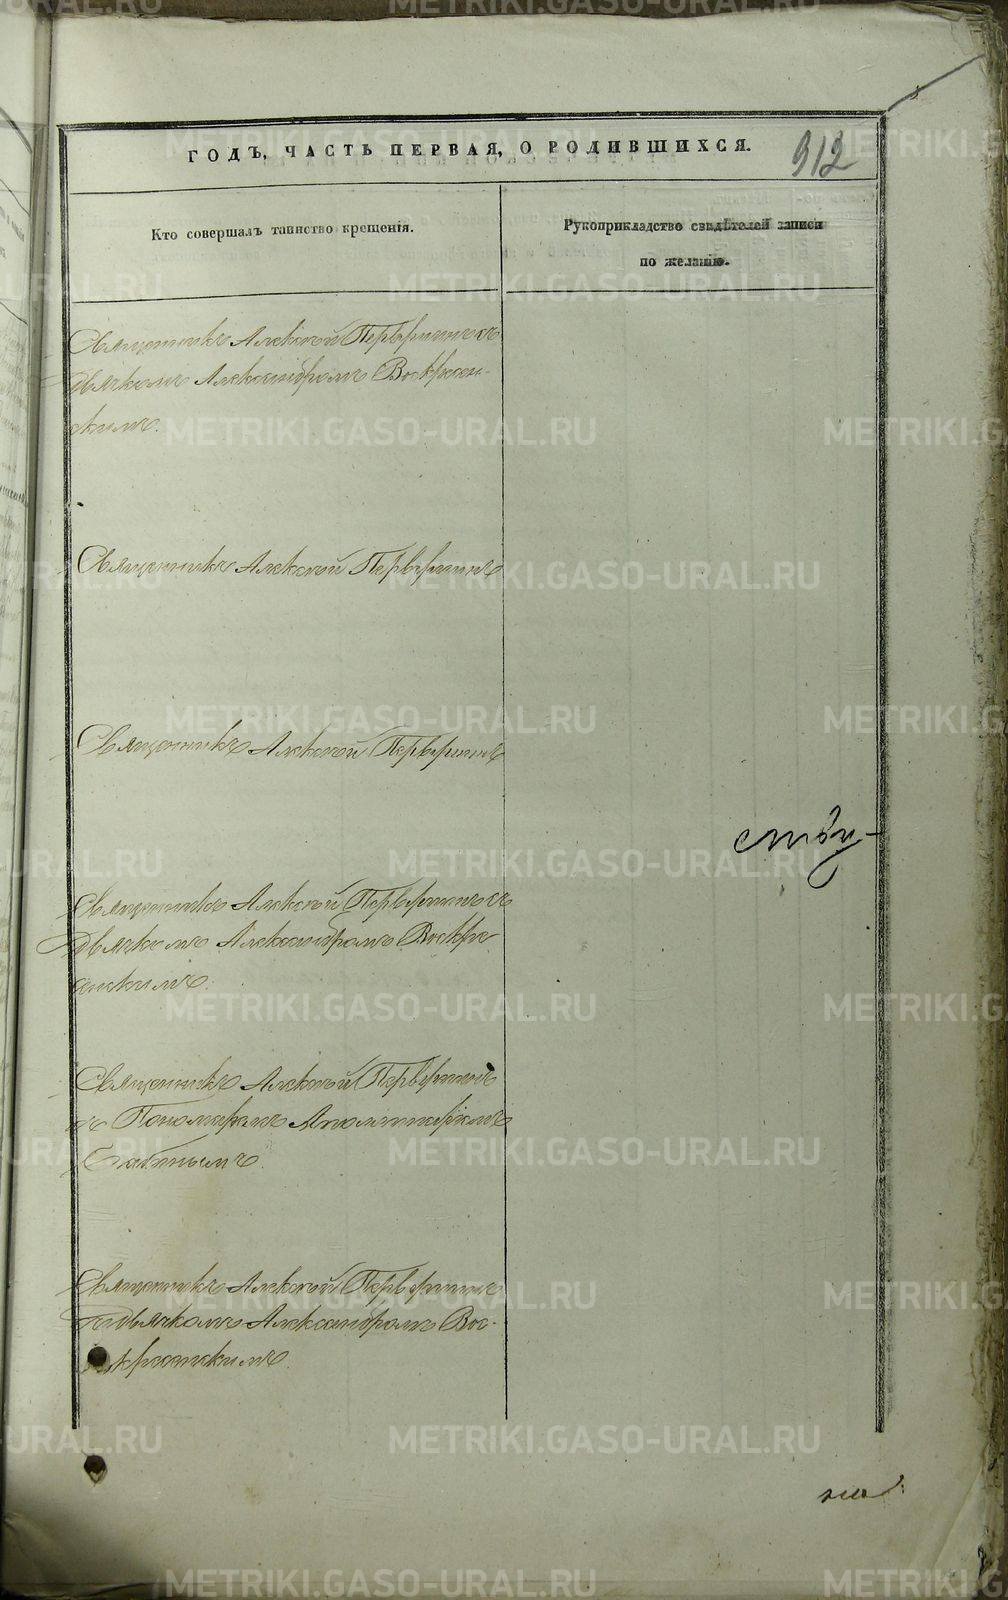 ГОДЪ, ЧАСТЬ ПЕРВАЯ, О РОДИВШИХСЯ.
912
Кто совершалъ таинство крещенія.
Рукоприкладство свидѣтелей записи
по желанію.
Священникъ Алексѣй Первушинъ съ
дьячкомъ Александромъ Воскресен-
скимъ.
Священникъ Алексѣй Первушинъ
Священникъ Алексѣй Первушинъ
Священникъ Алексѣй Первушинъ съ
Дьячкомъ Александромъ Воскре
сенскимъ.
Священникъ Алексѣй Первушинъ
съ Пономаремъ
Священникъ Алексѣй Первушинъ
съ Дьячкомъ Александромъ Вос-
кресенскимъ
METRIKI.GASO-URAL.RU